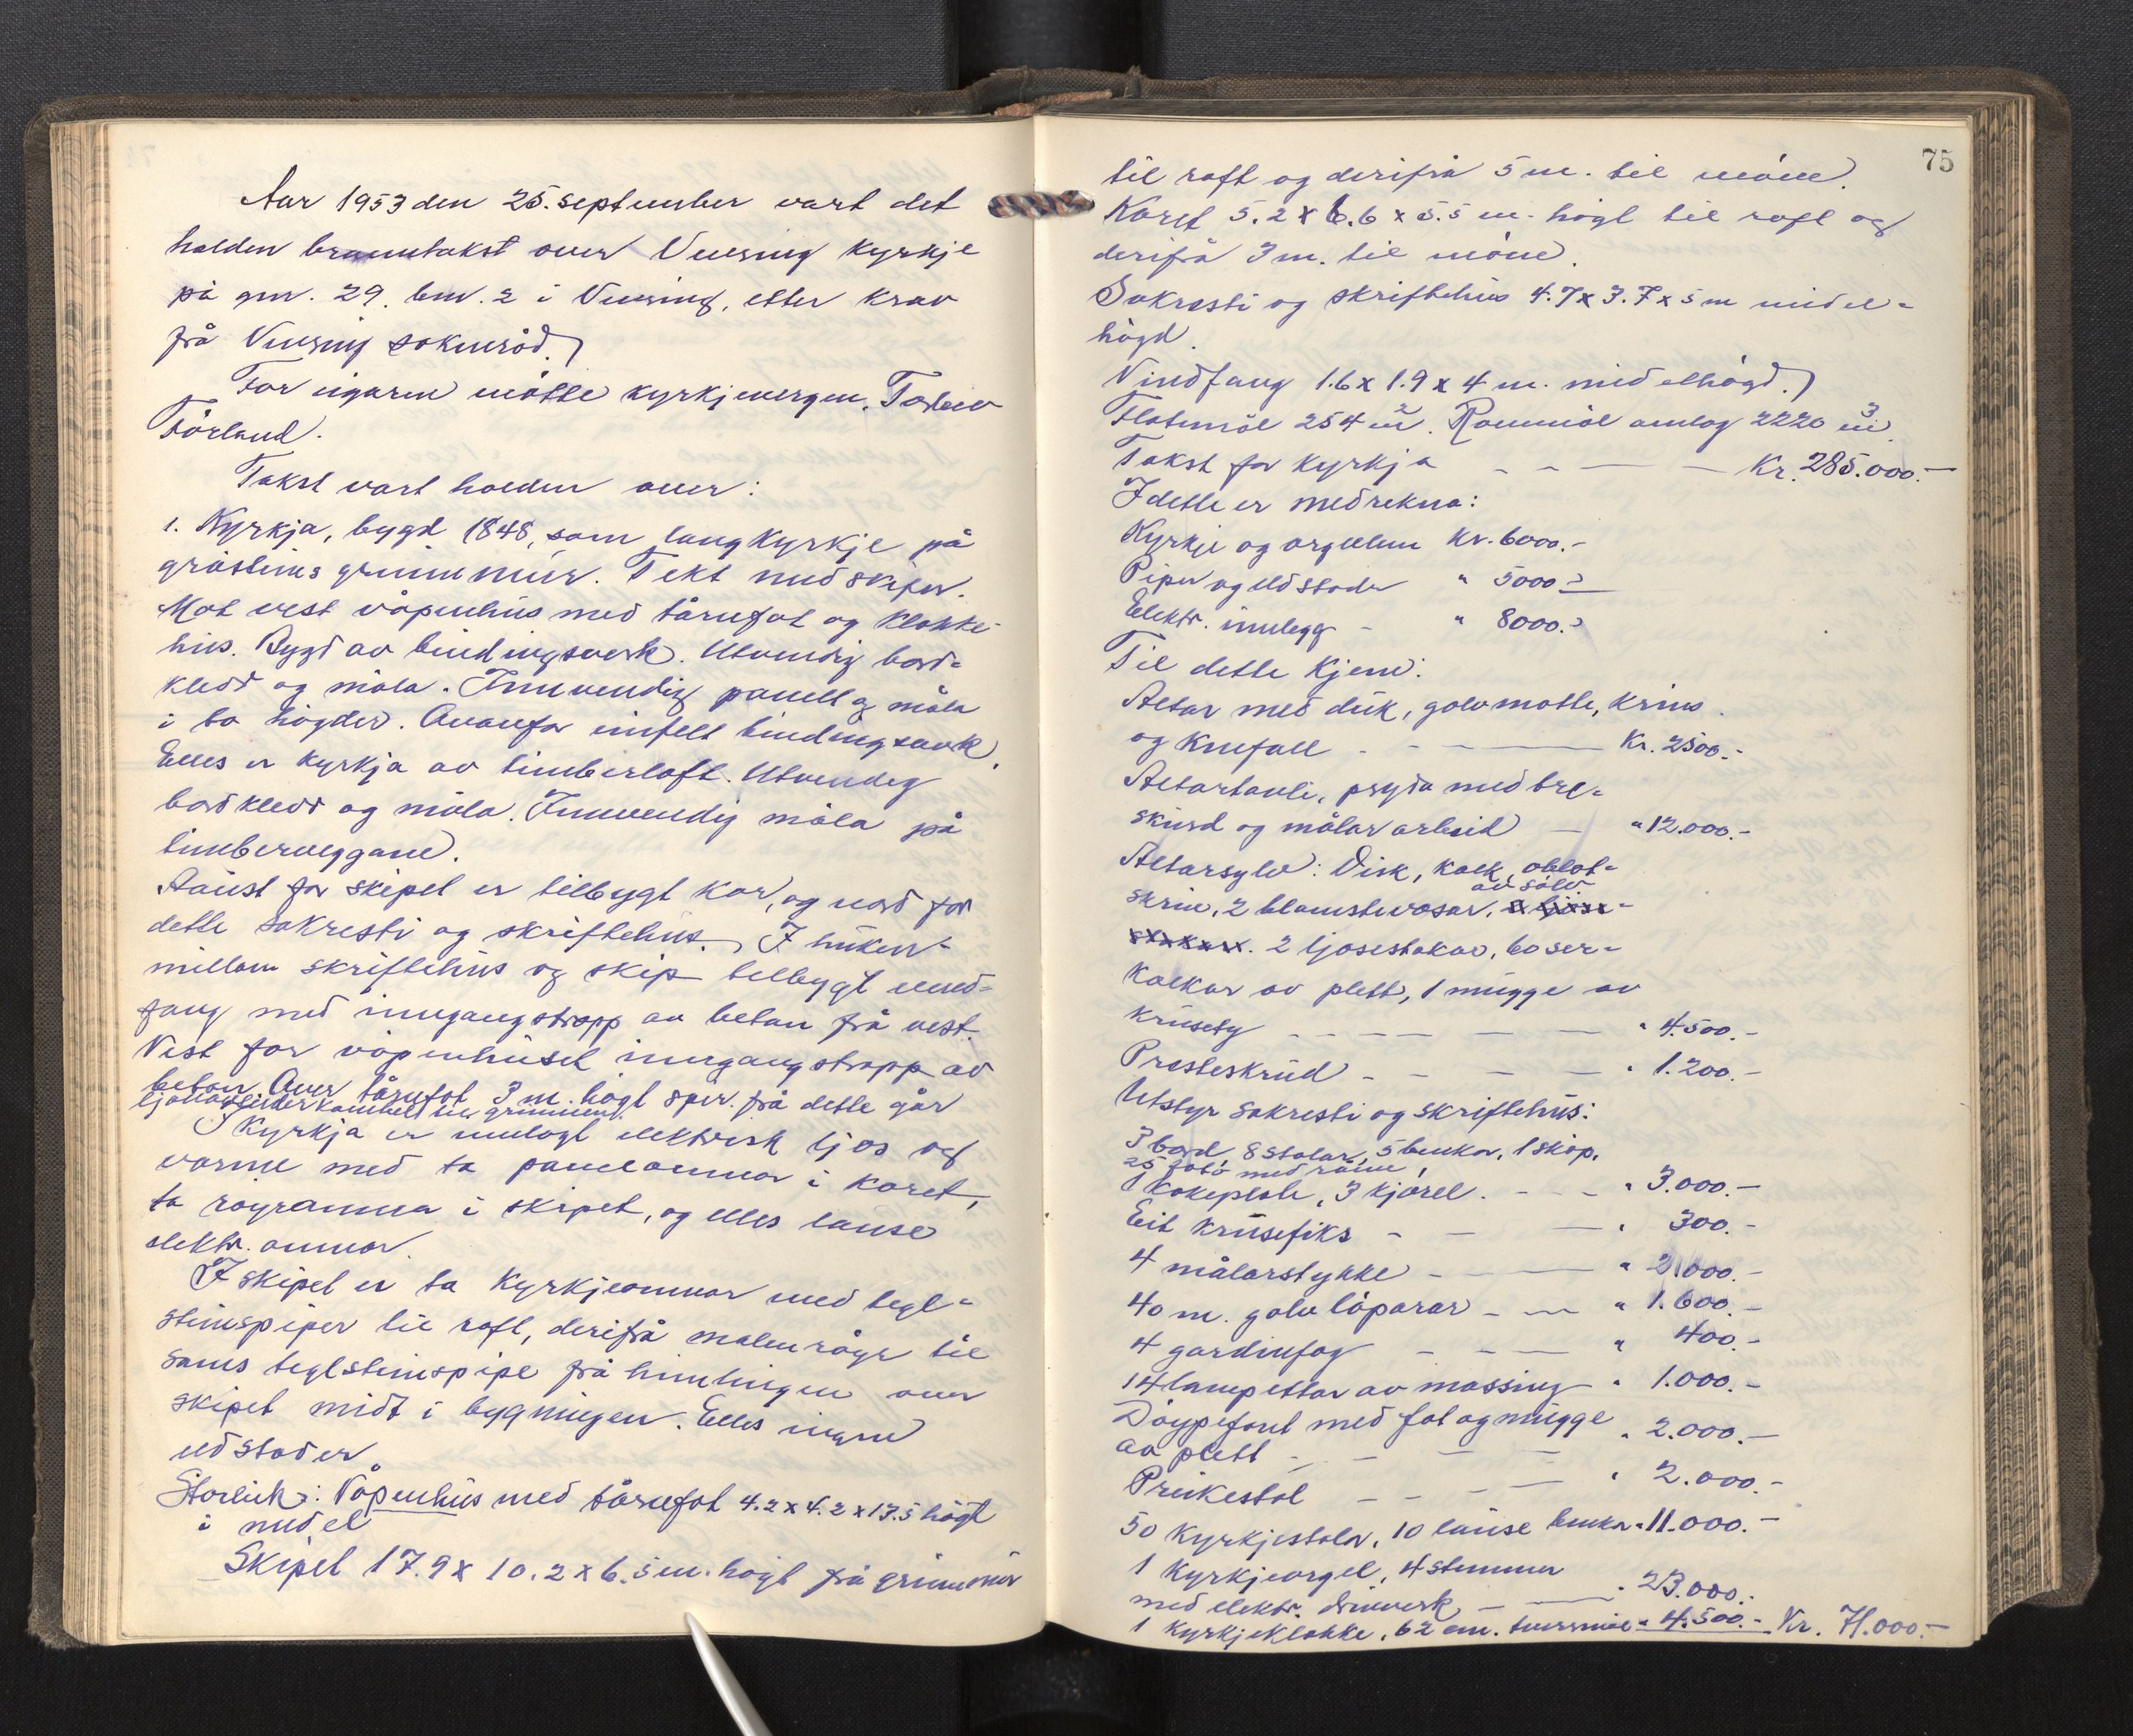 Aar 1953 den 25. september vart det
halden branntakst over Vuering kyrkje
på gnr. 29. bnr. 2 i Vuering, etter krav
frå Vuering sokneråd.
For eigaren møtte kyrkjevergen,
Förland.
Takst vart halden over:
1. Kyrkja, bygd 1848, som langkyrkje på
gråsteins grunnmur. Tekt med skifer.
Mot vest våpenhus med tårnfot og klokke-
hus. Bygd av bindingsverk. Utvendig bord-
kledd og måla. Innvendig panelt og måla
i to högder. Ovanfor innfelt bindingsverk.
Elles er kyrkja av timberloft. Utvendig
bordkledd og måla. Innvendig måla på
timberveggane.
Aaust for skipet er tilbygt kor, og nord for
dette sakresti og skriftehus. I huken
millom skriftehus og skip tilbygt vind-
fang med inngangstropp av betan frå vest.
Vest for våpenhuset inngangstropp av
betan. Over tårnfot 3 m. högt spir. frå dette går
ljonavleiderkambel ned grunnen.
I kyrkja er innlagt elektrisk ljos og
varme med to panelomnar i koret,
to röyromna i skipet, og elles lause
elektr. omnar.
I skipet er to kyrkjeomnar med tegl-
steinspiper til raft, derifrå malmröyr til
sams teglsteinspipe frå himlingen over
skipet midt i bygningen. Elles ingen
eldstader.
Storleik: Våpenhus med tårnfot 4.2 x 4.2 x 17.5 högt
i medel
Skipet 17.9 x 10.2 x 6.5 m. högt frå grunnmur
75
til raft og derifrå 5 m. til möne.
Koret 5.2 x 6.6 x 5.5 m. högt til raft og
derifrå 3 m. til möne.
Sakresti og skriftehus 4.7 x 3.7 x 5 m midel-
högd.
Vindfang 1.6 x 1.9 x 4 m. midelhögd.
Flatemål 254 m². Rommål omlag 2220 m³.
Takst for kyrkja - - - - Kr. 285.000.-
I dette er medrekna:
Kyrkje og orgellem Kr. 6000.-
Piper og eldstader " 5000.-
Elektr. innlegg - " 8000.-
Til dette kjem:
Altar med duk, golvmotte, krins
og knefall - - - - Kr. 2500.-
Altartavle, pryda med tre-
skurd og målararbeid - " 12.000.-
Altarsylv: Disk, kalk, oblat-
av sölv.
skrin, 2 blomstevasar,
2 ljosestakar, 60 ser-
kalkar av plett, 1 mugge av
krusety - - - - " 4.500.-
Presteskrud - - - - " 1.200.-
Utstyr sakresti og skriftehus:
3 bord, 8 stolar, 5 benker, 1 skåp,
25 foto med råme,
1 kokeplate, 3 kjörel. - - " 3.000.-
Eit krusefiks - - - " 300.-
4 målarstykke - - - " 2.000.-
40 m. golvlöparar - - " 1.600.-
4 gardinfag - - - " 400.-
14 lampettar av messing " 1.000.-
Döypefont med fat og mugge
av plett - - - - " 2.000.-
Preikestol - - - - " 2.000.-
50 kyrkjestolar, 10 lause benker " 11.000.-
1 Kyrkjeorgel, 4 stemmer
med elektr. drivverk - - " 23.000.-
1 Kyrkjeklokke, 62 cm. tverrmål " 4.500.- Kr. 71.000.-